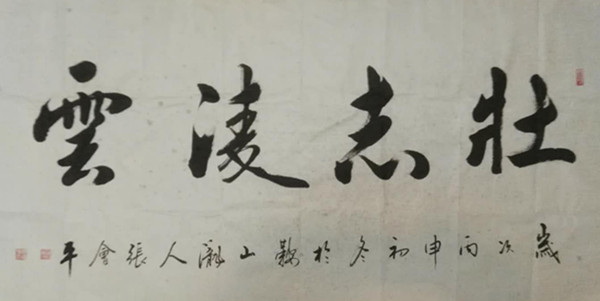 壯志凌雲
歲次丙申初冬於鷄山瀚人張會平